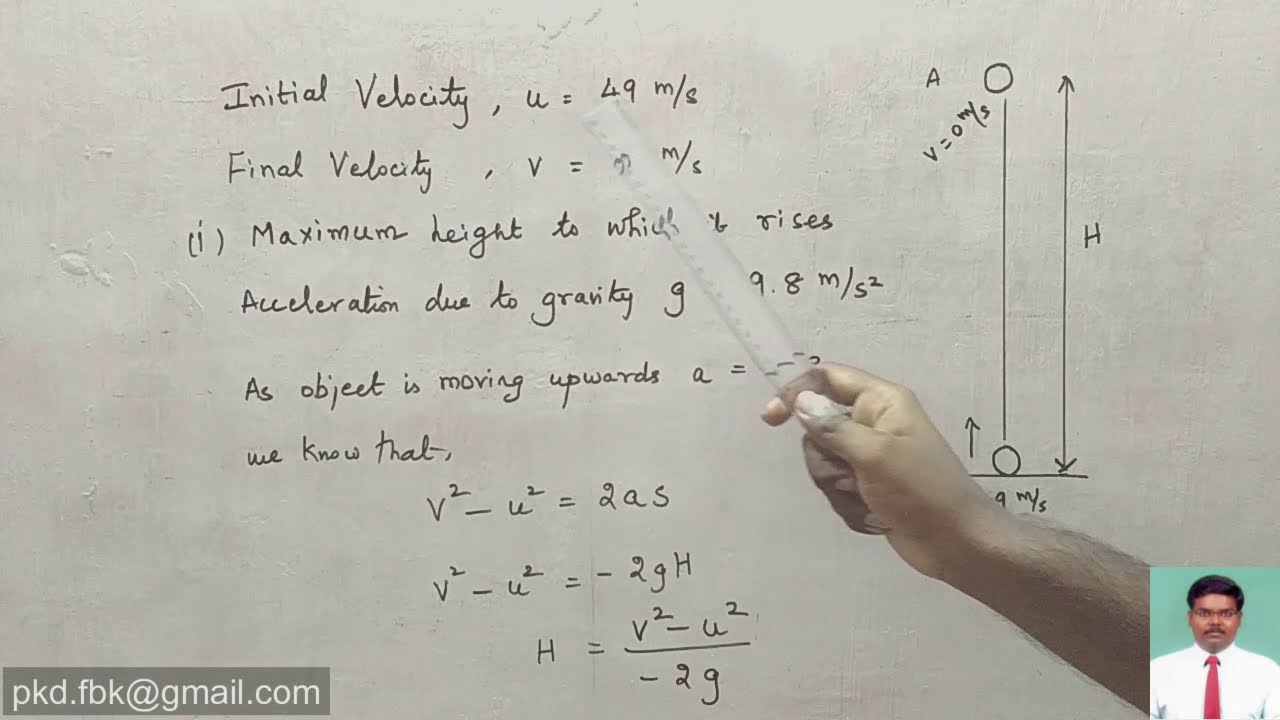 Initial Velocity, u = 49 m/s
Final Velocity, v = m/s
(i) Maximum height to which it rises
Acceleration due to gravity g 9.8 m/s²
As object is moving upwards a = -
we know that,
v² - u² = 2as
v² - u² = - 2gH
H = v² - u² / - 2g
A
v = 0 m/s
H
9 m/s
pkd.fbk@gmail.com